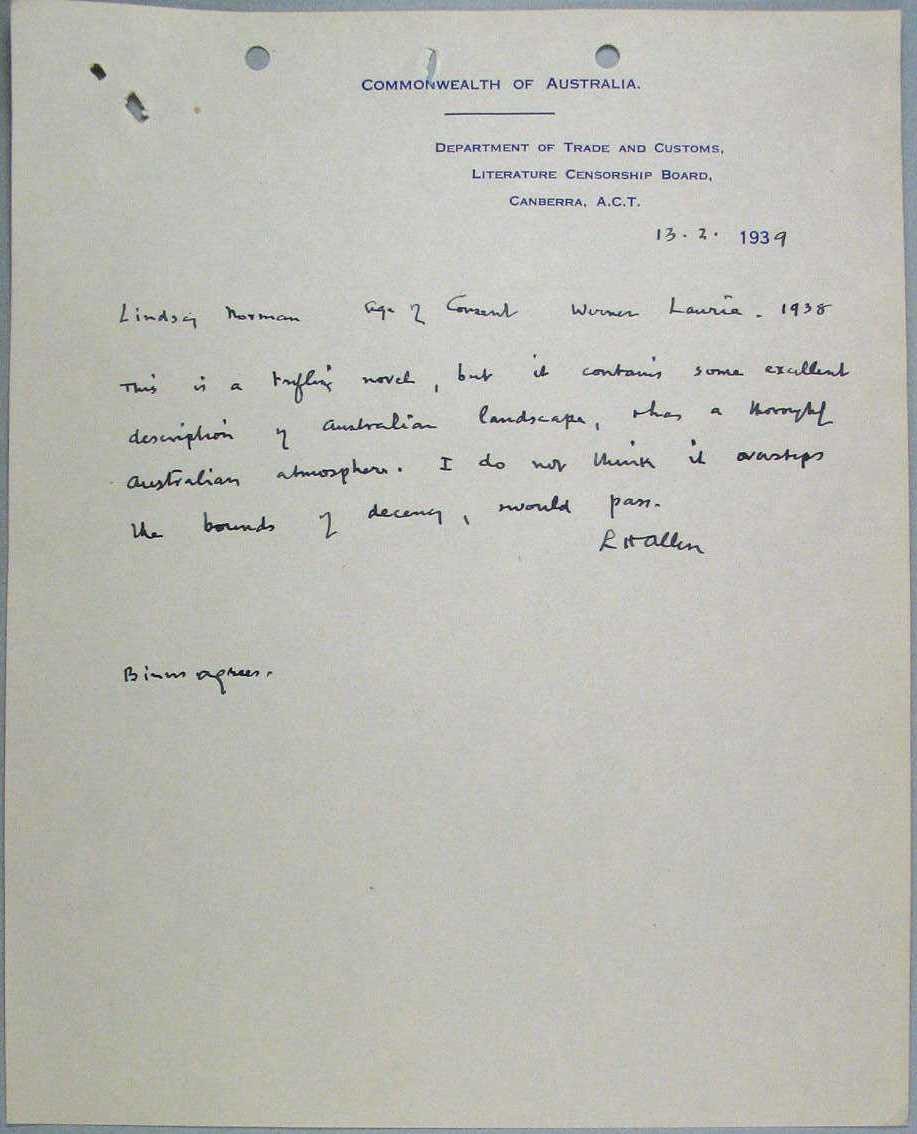 COMMONWEALTH OF AUSTRALIA.
DEPARTMENT OF TRADE AND CUSTOMS,
LITERATURE CENSORSHIP BOARD,
CANBERRA, A.C.T.
13.2. 1939
Lindsay Norman Age of Consent Werner Laurie. 1938
This is a trifling novel, but it contains some excellent
description of Australian landscape, & has a thoroughly
Australian atmosphere. I do not think it oversteps
the bounds of decency, & would pass.
L H Allen
Binns agrees.